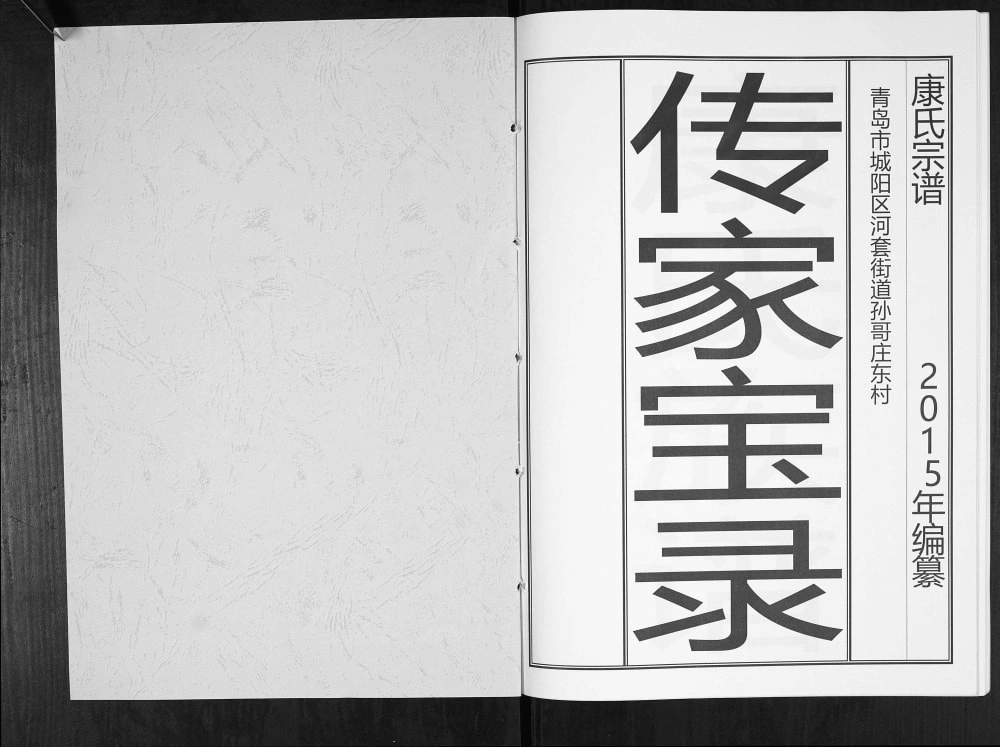 康氏宗谱 2015年编纂
青岛市城阳区河套街道孙哥庄东村
传家宝录